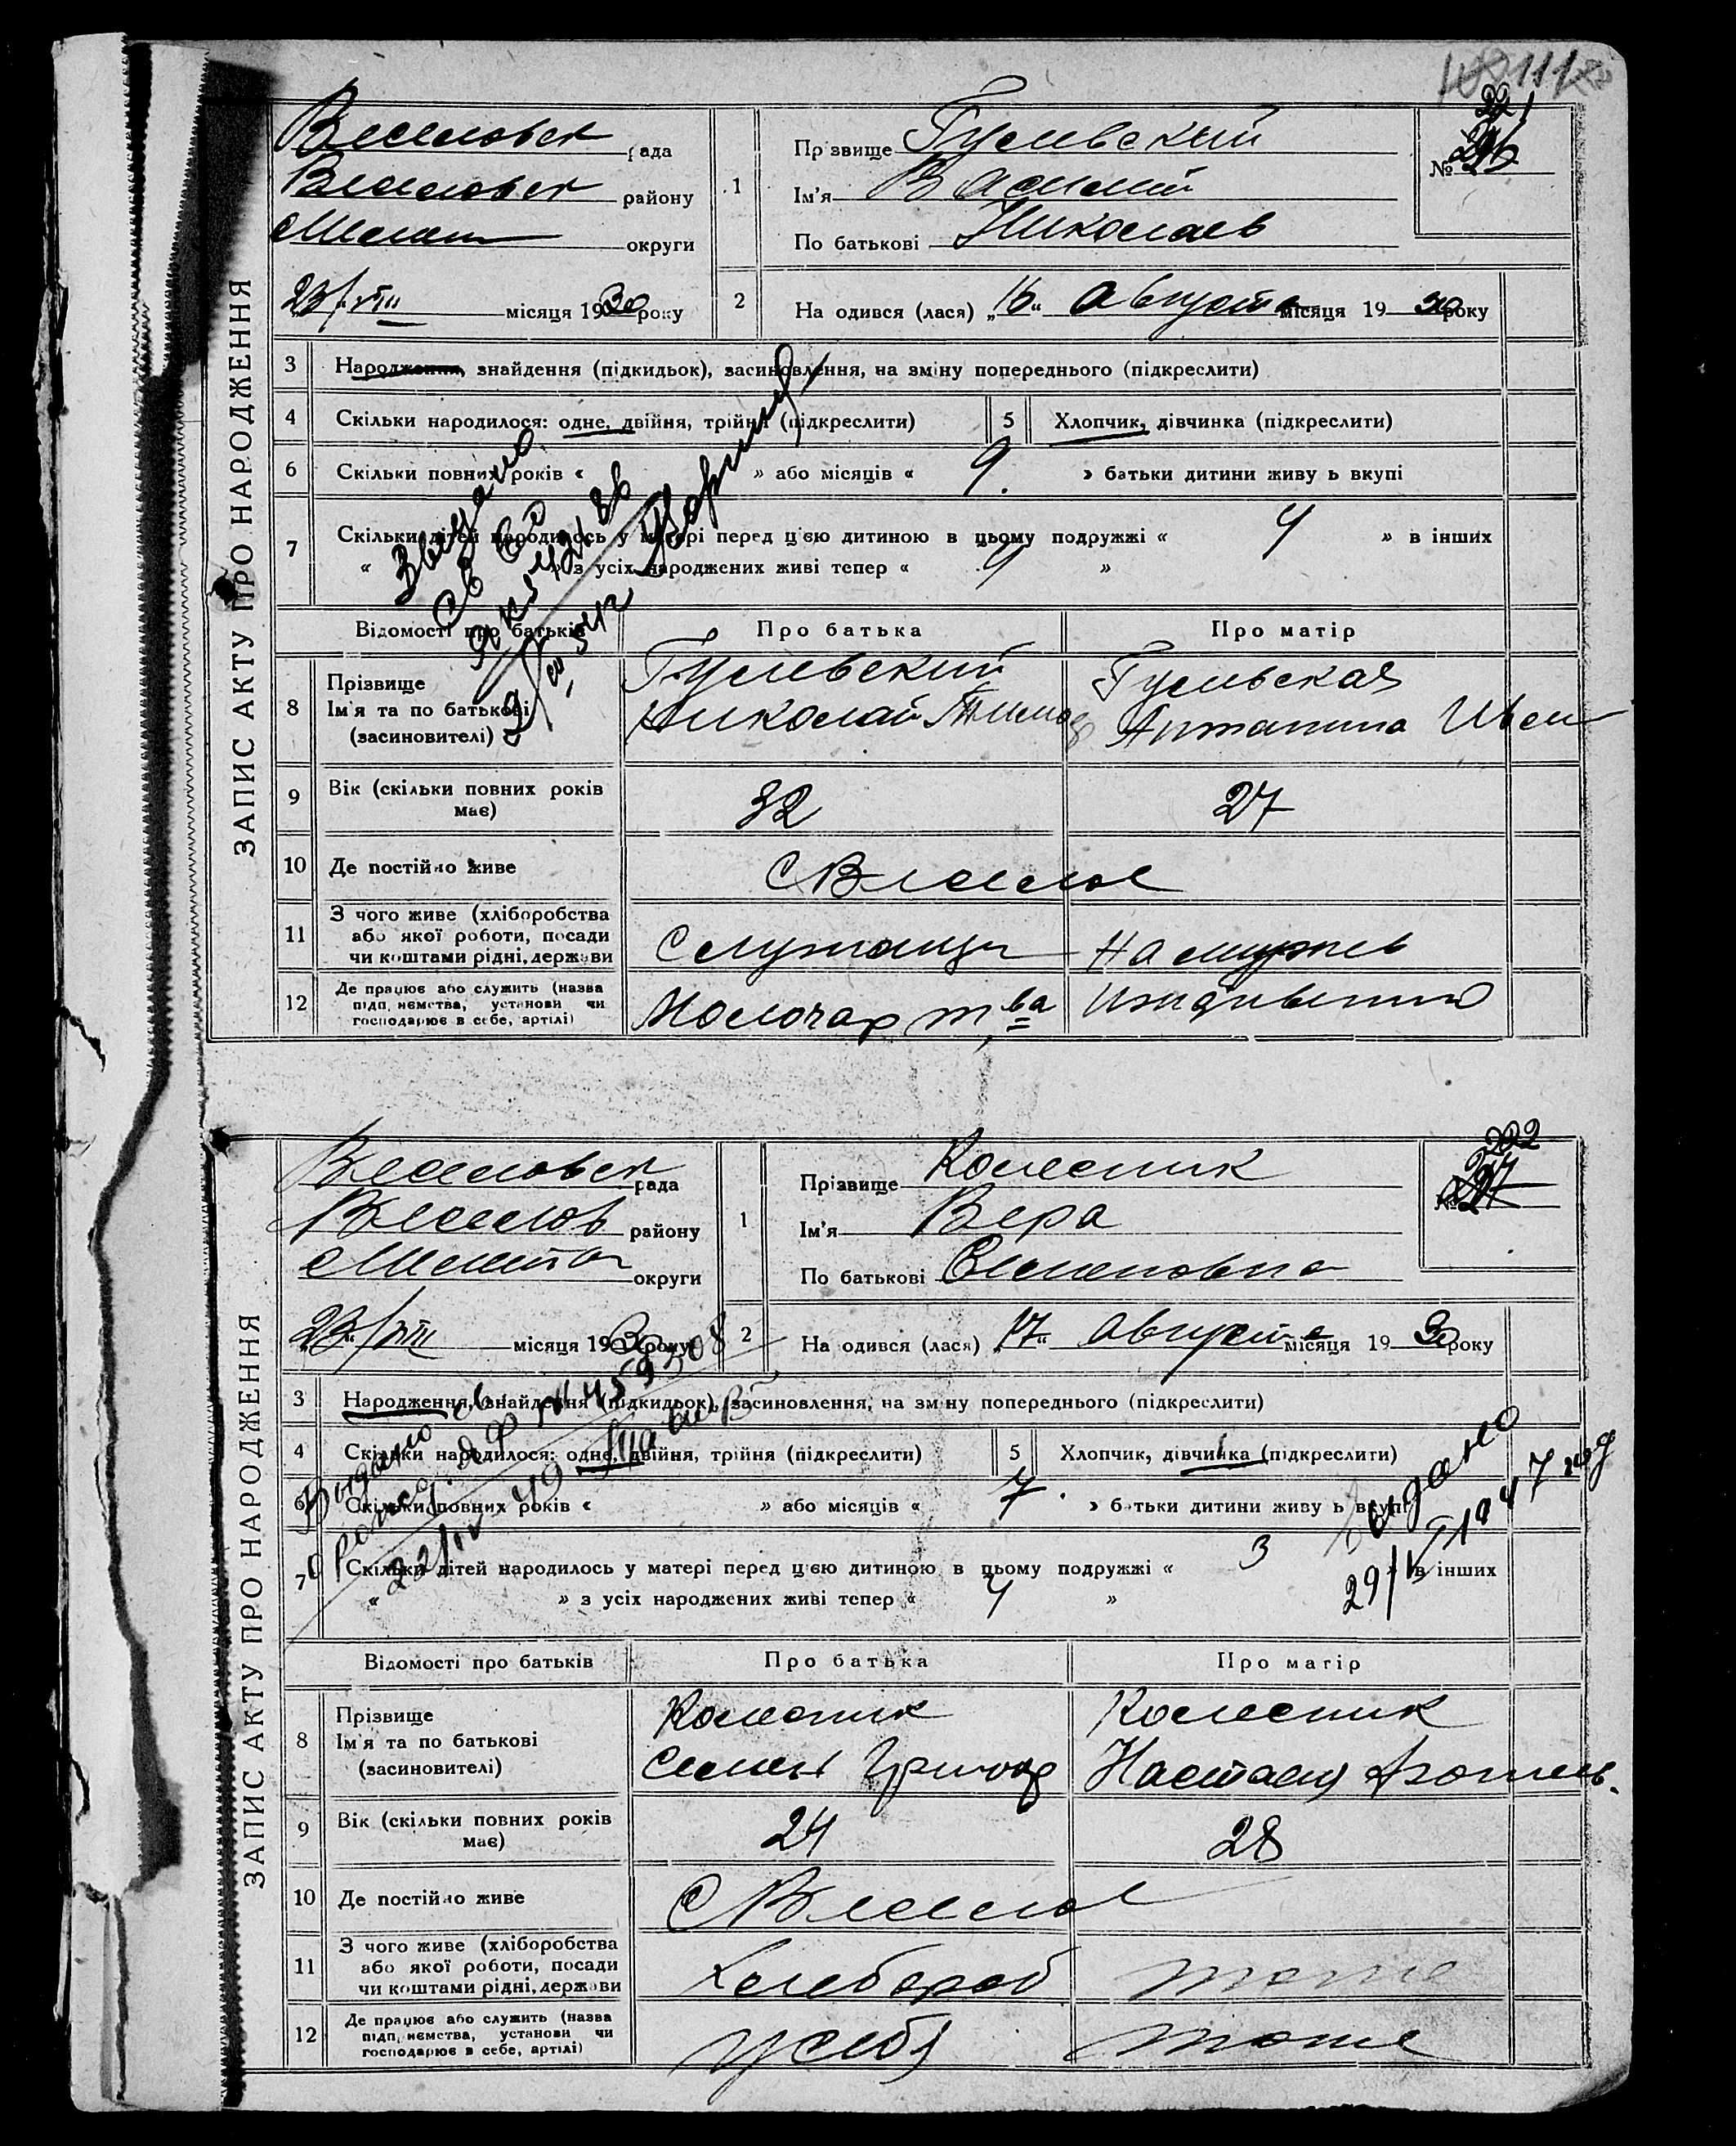 111
ЗАПИС АКТУ ПРО НАРОДЖЕННЯ
Веселовск рада
Веселовск району
Мелит округи
23/VIII місяця 1930 року
1
Прізвище Гусевский
Ім'я Василий
По батькові Николаев
№ 221
2 На одився (лася) „16" Августа місяця 1930 року
3 Народження, знайдення (підкидьок), засиновлення, на зміну попереднього (підкреслити)
4 Скільки народилося: одне, двійня, трійня (підкреслити) 5 Хлопчик, дівчинка (підкреслити)
6 Скільки повних років « » або місяців « 9. » батьки дитини живу ь вкупі
7 Скільки дітей народилось у матері перед цією дитиною в цьому подружжі « 4 » в інших
« » з усіх народжених живі тепер « 4 »
Відомості про батьків Про батька Про матір
8 Прізвище
Ім'я та по батькові
(засиновителі)
Гусевский
Николай Тимоф
Гусевская
Антанина Иван
9 Вік (скільки повних років має) 32 27
10 Де постійно живе С Веселое
11 З чого живе (хліборобства
або якої роботи, посади
чи коштами рідні, держави
Служащи На мужев
12 Де працює або служить (назва
підп, иємства, установи чи
господарює в себе, артілі)
Молочар т ва Иждивении
ЗАПИС АКТУ ПРО НАРОДЖЕННЯ
Веселовск рада
Веселов району
Мелитоп округи
23/VIII місяця 1930 року
1
Прізвище Колесник
Ім'я Вера
По батькові Семеновна
№ 222
2 На одився (лася) „17" Августа місяця 1930 року
3 Народження, знайдення (підкидьок), засиновлення, на зміну попереднього (підкреслити)
4 Скільки народилося: одне, двійня, трійня (підкреслити) 5 Хлопчик, дівчинка (підкреслити)
6 Скільки повних років « » або місяців « 7. » батьки дитини живу ь вкупі
Видано
29/VI 1947 год
7 Скільки дітей народилось у матері перед цією дитиною в цьому подружжі « 3 » в інших
« » з усіх народжених живі тепер « 4 »
Відомості про батьків Про батька Про матір
8 Прізвище
Ім'я та по батькові
(засиновителі)
Колесник
Семен Григор
Колесник
Настасия
9 Вік (скільки повних років має) 24 28
10 Де постійно живе С Веселое
11 З чого живе (хліборобства
або якої роботи, посади
чи коштами рідні, держави
Хлебороб тоже
12 Де працює або служить (назва
підп, иємства, установи чи
господарює в себе, артілі)
у себя тоже